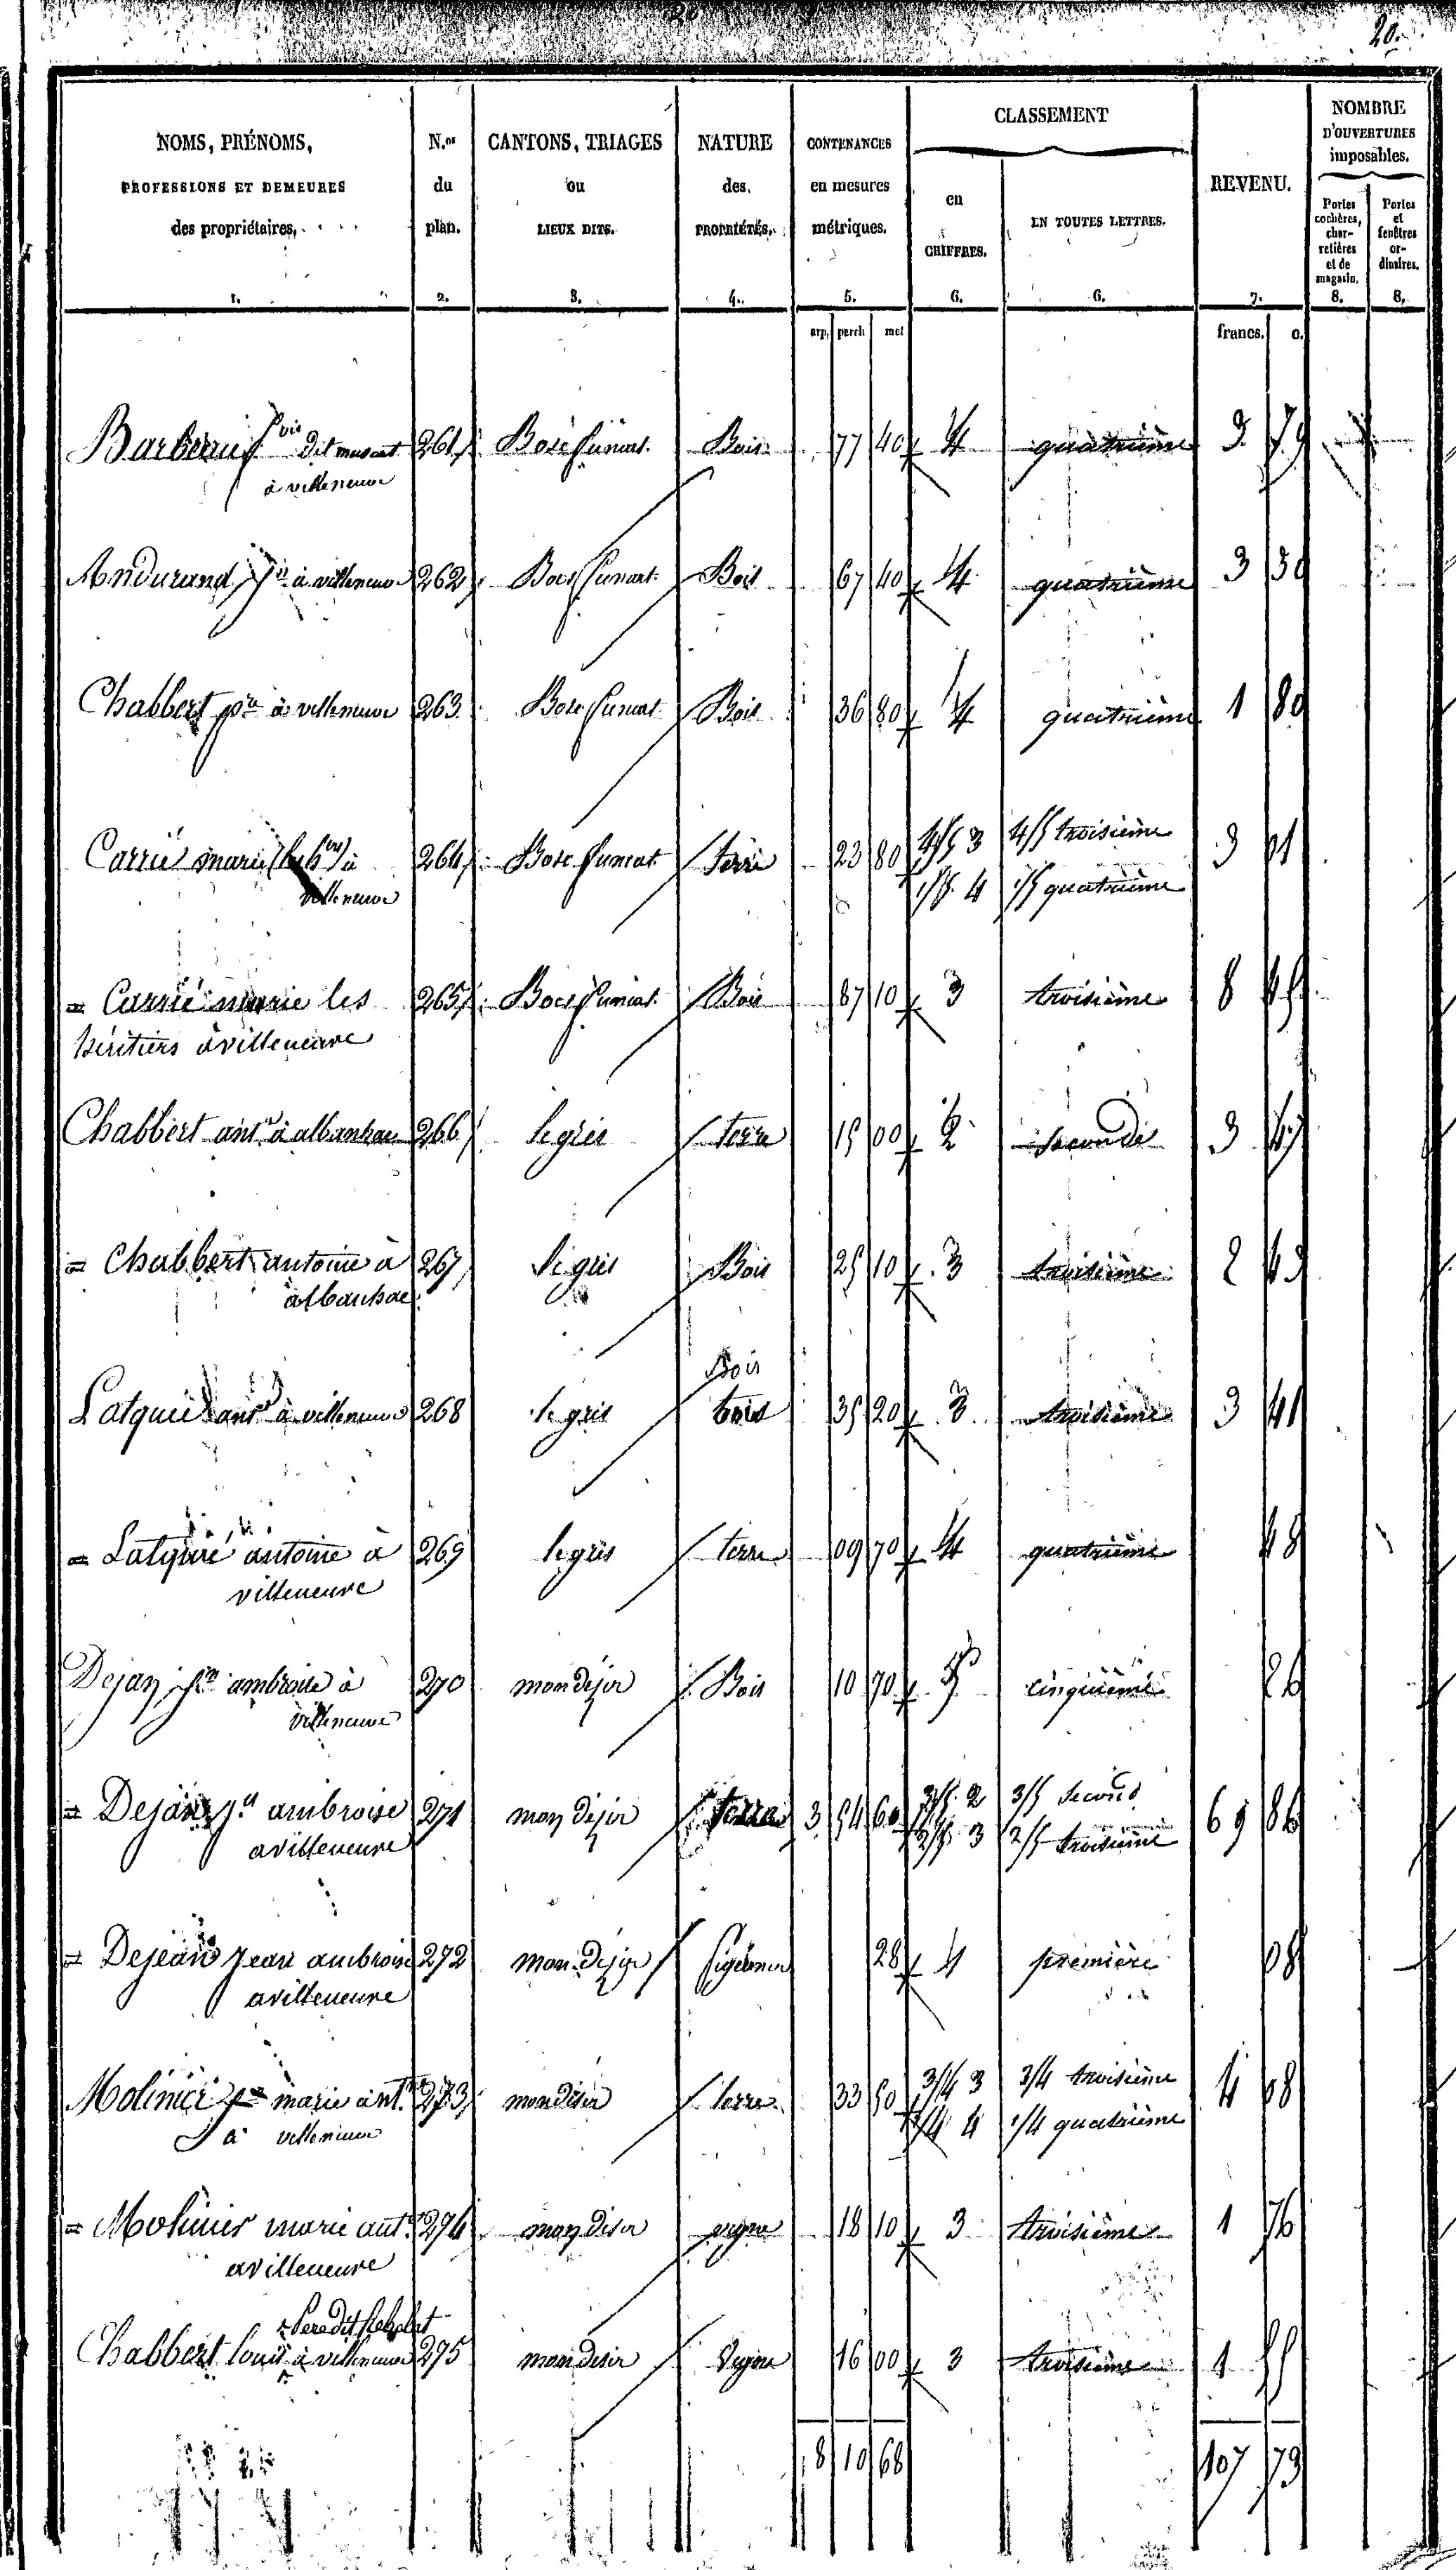 20.
NOMS, PRÉNOMS, PROFESSIONS ET DEMEURES des propriétaires. 1.
N.os du plan. 2.
CANTONS, TRIAGES ou LIEUX DITS. 3.
NATURE des PROPRIÉTÉS. 4.
CONTENANCES en mesures métriques. 5.
CLASSEMENT
en CHIFFRES. 6.
EN TOUTES LETTRES. 6.
REVENU. 7.
NOMBRE D'OUVERTURES imposables.
Portes cochères, charretières et de magasin. 8.
Portes et fenêtres ordinaires. 8.
arp. perch met francs. c.
dit à villeneuve 261 Bois 77 40 4 quatrième 3 79
Andurand à villeneuve 262 Bois 67 40 4 quatrième 3 30
Chabbert à villeneuve 263 Bois 36 80 4 quatrième 1 80
Carrié marie à villeneuve 264 terre 23 80 4/5 3 4/5 troisième 3 01
1/5 4 1/5 quatrième
= Carrié marie les héritiers à villeneuve 265 Bois 87 10 3 troisième 8 45
Chabbert ant.e à albanhac 266 le grès terre 15 00 2 seconde 3 47
= Chabbert antoine à albanhac 267 le grès Bois 25 10 3 troisième 2 43
ant.e à villeneuve 268 le grès Bois 35 20 3 troisième 3 41
= antoine à villeneuve 269 le grès terre 09 70 4 quatrième 48
Dejan ambroise à villeneuve 270 mon désir Bois 10 70 5 cinquième 26
= Dejan ambroise a villeneuve 271 mon désir terre 3 54 60 3/5 2 3/5 second 69 86
2/5 3 2/5 troisième
= Dejean Jean ambroise a villeneuve 272 mon désir 28 première 08
Molinier marie ant. à villeneuve 273 mon désir terre 33 50 3/4 3 3/4 troisième 4 08
1/4 4 1/4 quatrième
= Molinier marie ant. a villeneuve 274 mon désir vigne 18 10 3 troisième 1 76
Pere dit
Chabbert Louis à villeneuve 275 mon désir Vigne 16 00 3 troisième 1 55
8 10 68 107 73